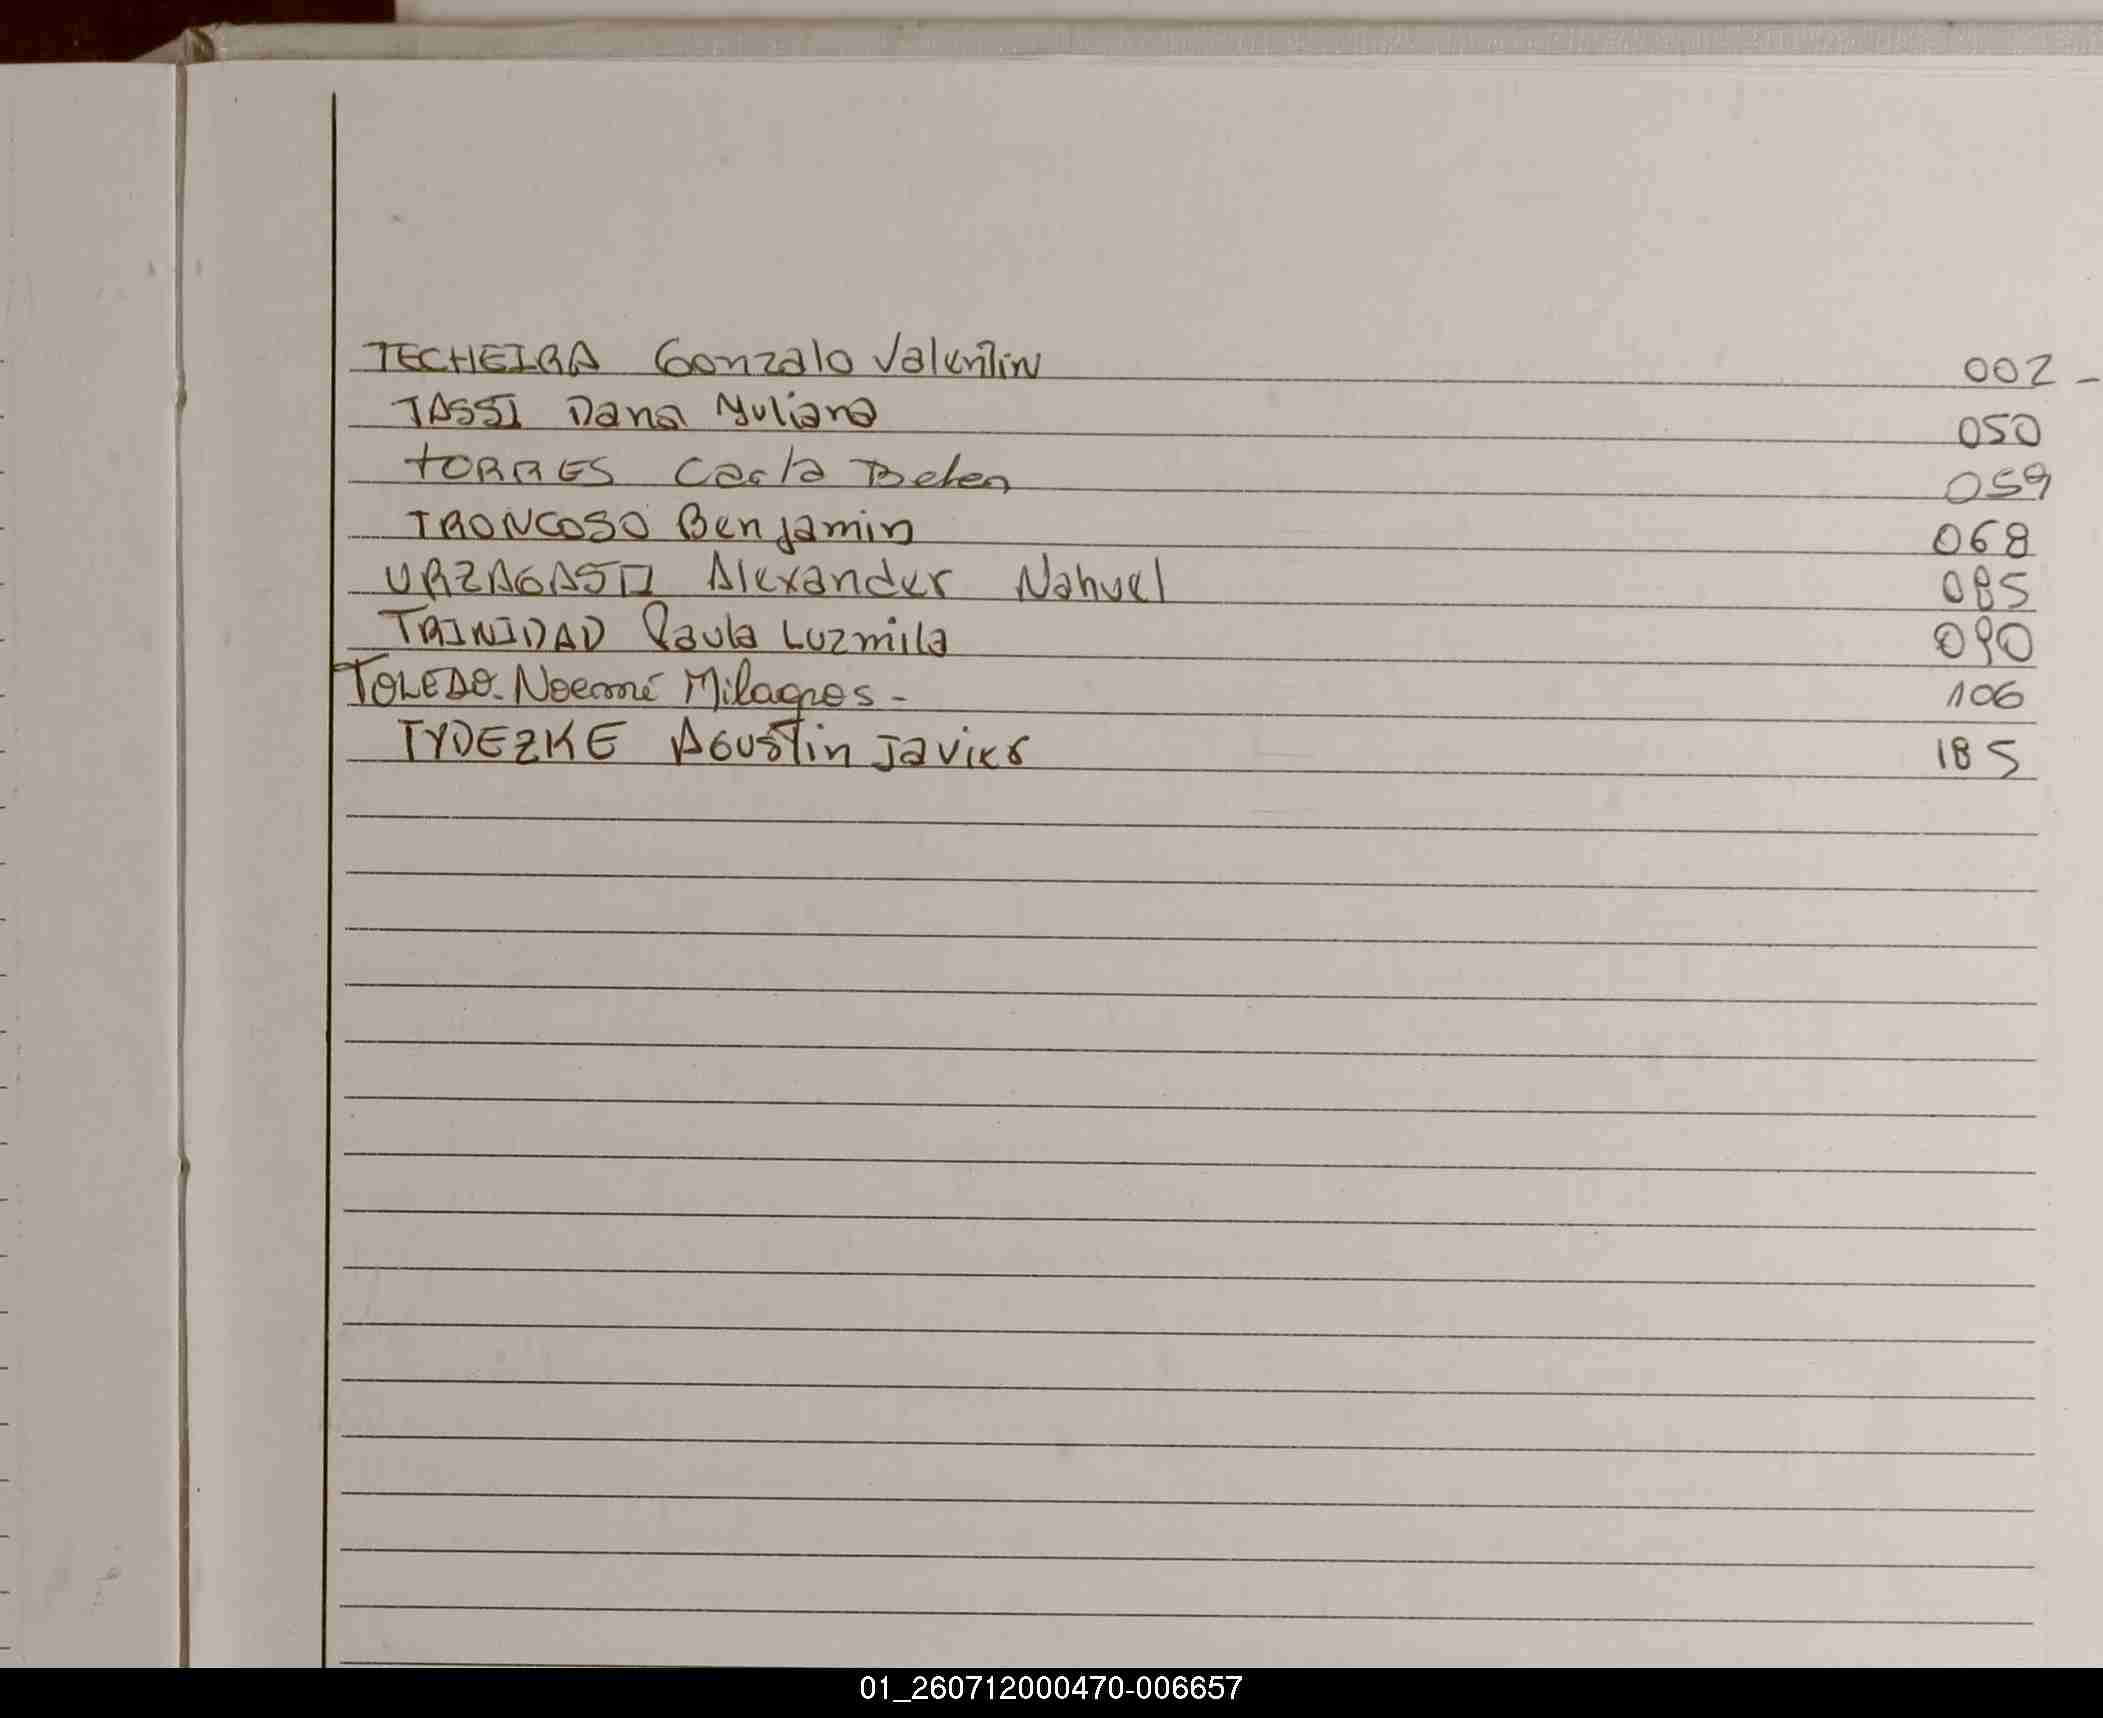 TECHEIRA Gonzalo Valentin 002 -
TASSI Dana Yuliana 050
TORRES Carla Belen 059
TRONCOSO Benjamin 068
URZAGASTI Alexander Nahuel 085
TRINIDAD Paula Luzmila 090
TOLEDO. Noemí Milagros - 106
TYDEZKE Agustin Javier 185
01_260712000470-006657